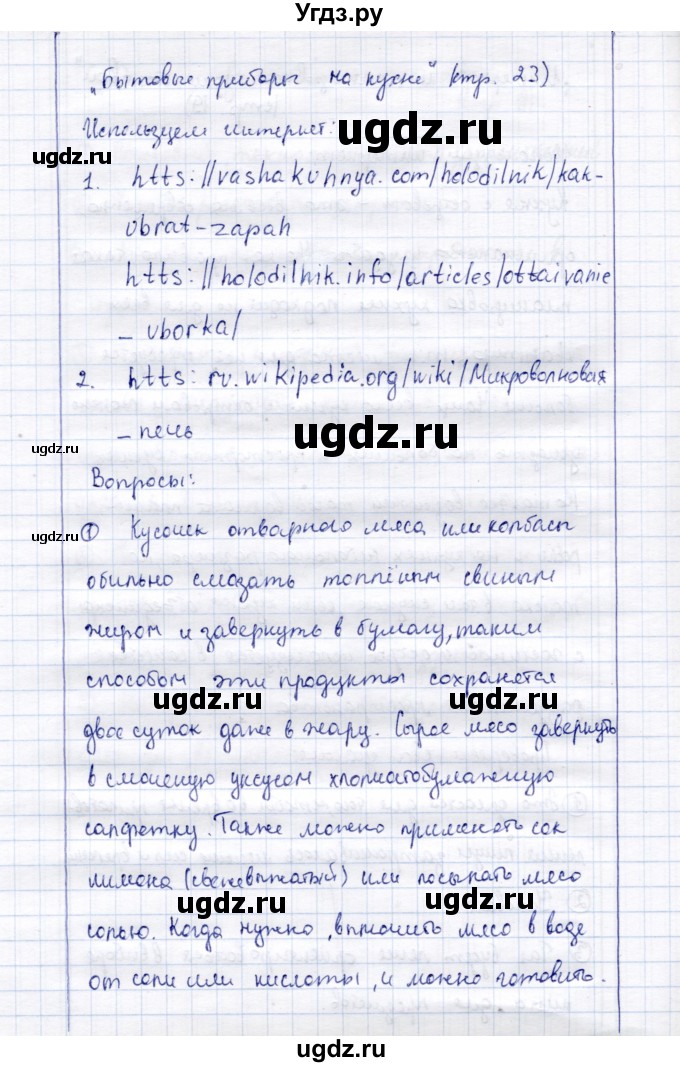 Угдз.ру
„Бытовые приборы на кухне" (стр. 23)
Используем интернет:
ugdz.ru
ugdz.ru
1. htts://vashakuhnya.com/holodilnik/kak-
ubrat-zapah
htts://holodilnik.info/articles/ottaivanie
_uborka/
2. htts: ru.wikipedia.org/wiki/Микроволновая
_печь
ugdz.ru
ugdz.ru
Вопросы:
ugdz.ru
① Кусочек отварного мяса или колбасы
обильно смазать топлёным свиным
жиром и завернуть в бумагу, таким
способом эти продукты сохранятся
ugdz.ru
ugdz.ru
двое суток даже в жару. Сырое мясо завернуть
в смоченую уксусом хлопчатобумажную
салфетку. Также можно применять сок
лимона (свежевыжатый) или посыпать мясо
ugdz.ru
ugdz.ru
солью. Когда нужно, вымочить мясо в воде
от соли или кислоты, и можно готовить.
ugdz.ru